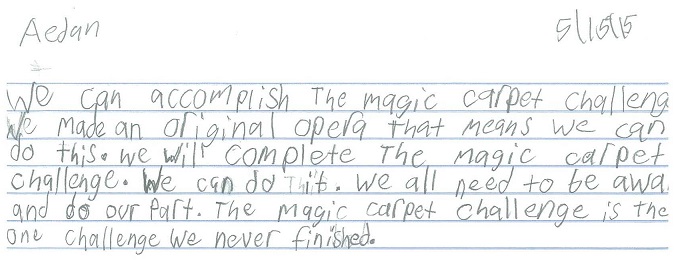 Aedan 5/15/15
We can accomplish The magic carpet challeng
We made an original opera that means we can
do this. we will complete The magic carpet
challenge. We can do it. we all need to be awa
and do our Part. The magic carpet challenge is the
one challenge we never finished.